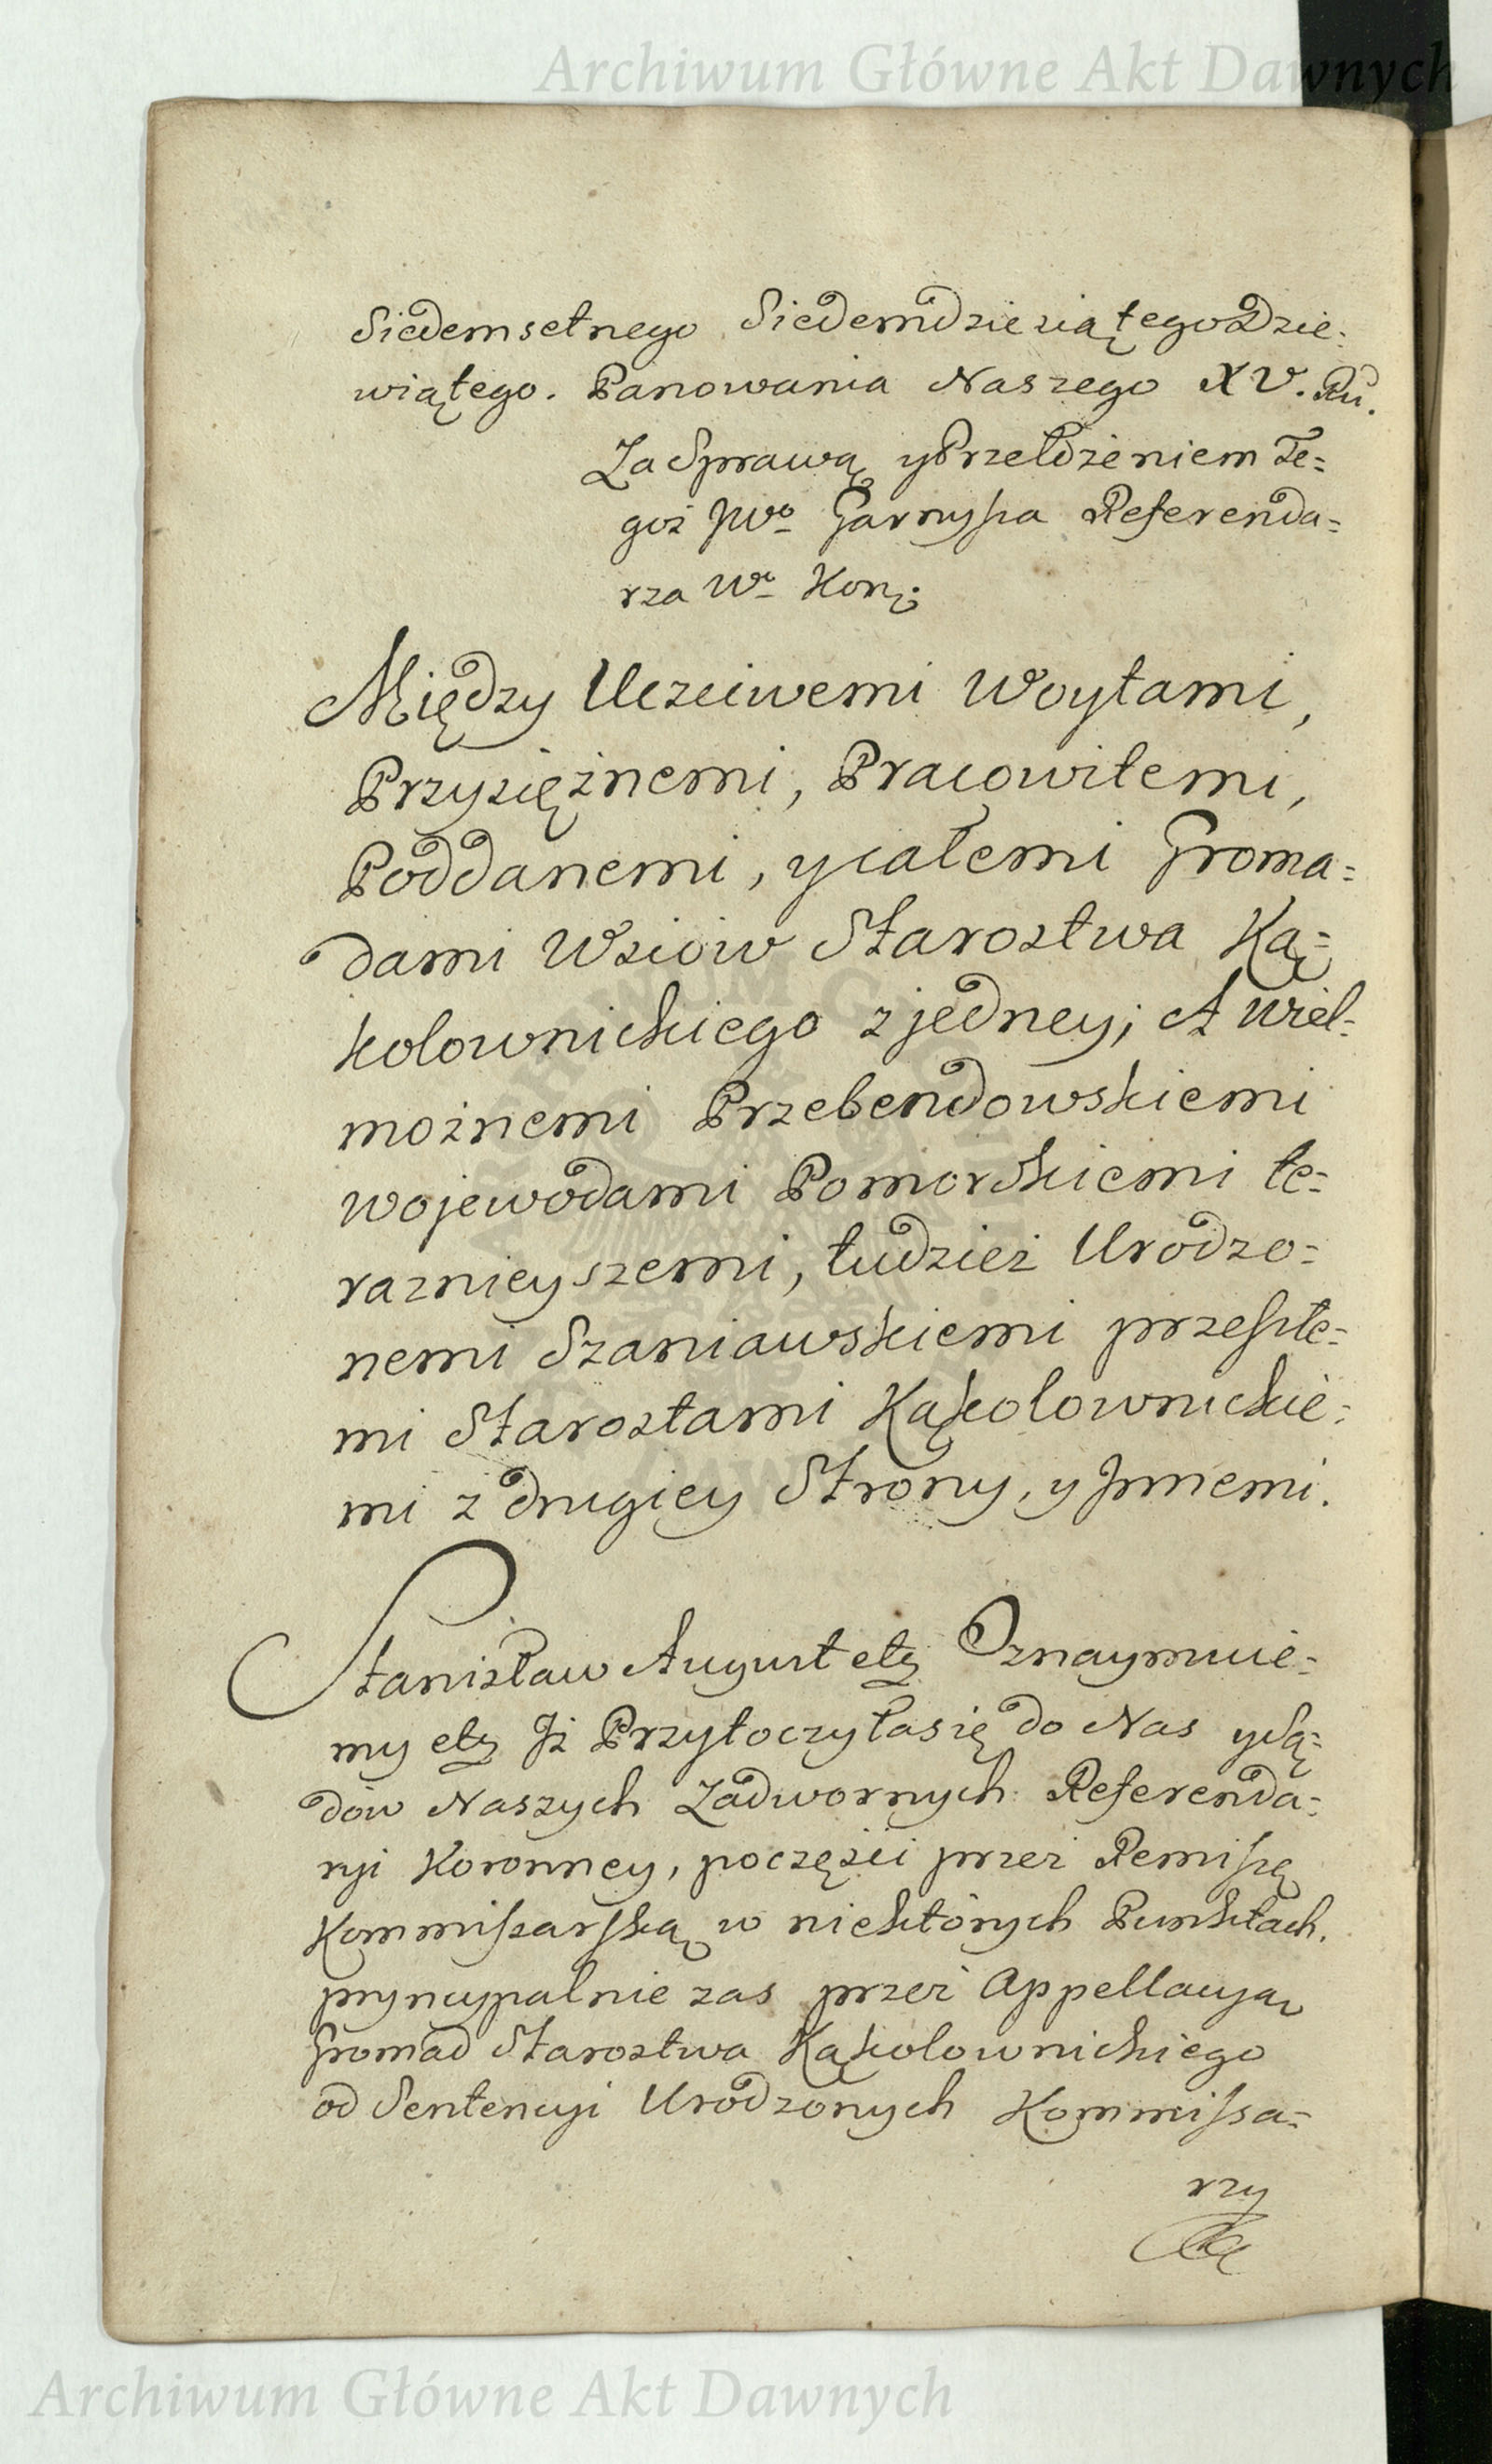 Archiwum Główne Akt Dawnych
Siedemsetnego Siedemdziesiątego Dzie=
wiątego. Panowania Naszego XV. Ru.
Za Sprawą y Przełożeniem Te=
goż JWo Garnysza Referenda=
rza Wo Kor:
Między Uczciwemi Woytami,
Przysiężnemi, Pracowitemi,
Poddanemi, y całemi Groma=
dami Wsiow Starostwa Ką=
kolownickiego z jedney; A Wiel=
możnemi Przebendowskiemi
Wojewodami Pomorskiemi te=
raznieyszemi, tudzież Urodzo=
nemi Szaniawskiemi przeszłe=
mi Starostami Kąkolownickie=
mi z drugiey Strony, y Jnnemi.
Stanisław August etc Oznaymuie=
my etc Jż Przytoczyła się do Nas y Są=
dow Naszych Zadwornych Referenda=
ryi Koronney, poczęści przez Remissę
Kommissarską w niektórych Punktach,
pryncypalnie zas przez Appellacyą
Gromad Starostwa Kąkolownickiego
od Sentencyi Urodzonych Kommissa=
rzy
Archiwum Główne Akt Dawnych